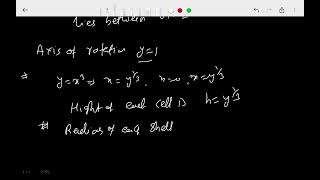 lies between
Axis of rotation y=1
⇒ y=x³ ⇒ x = y^1/3, x=0, x=y^1/3
Hight of each cell is h=y^1/3
Radius of each shell